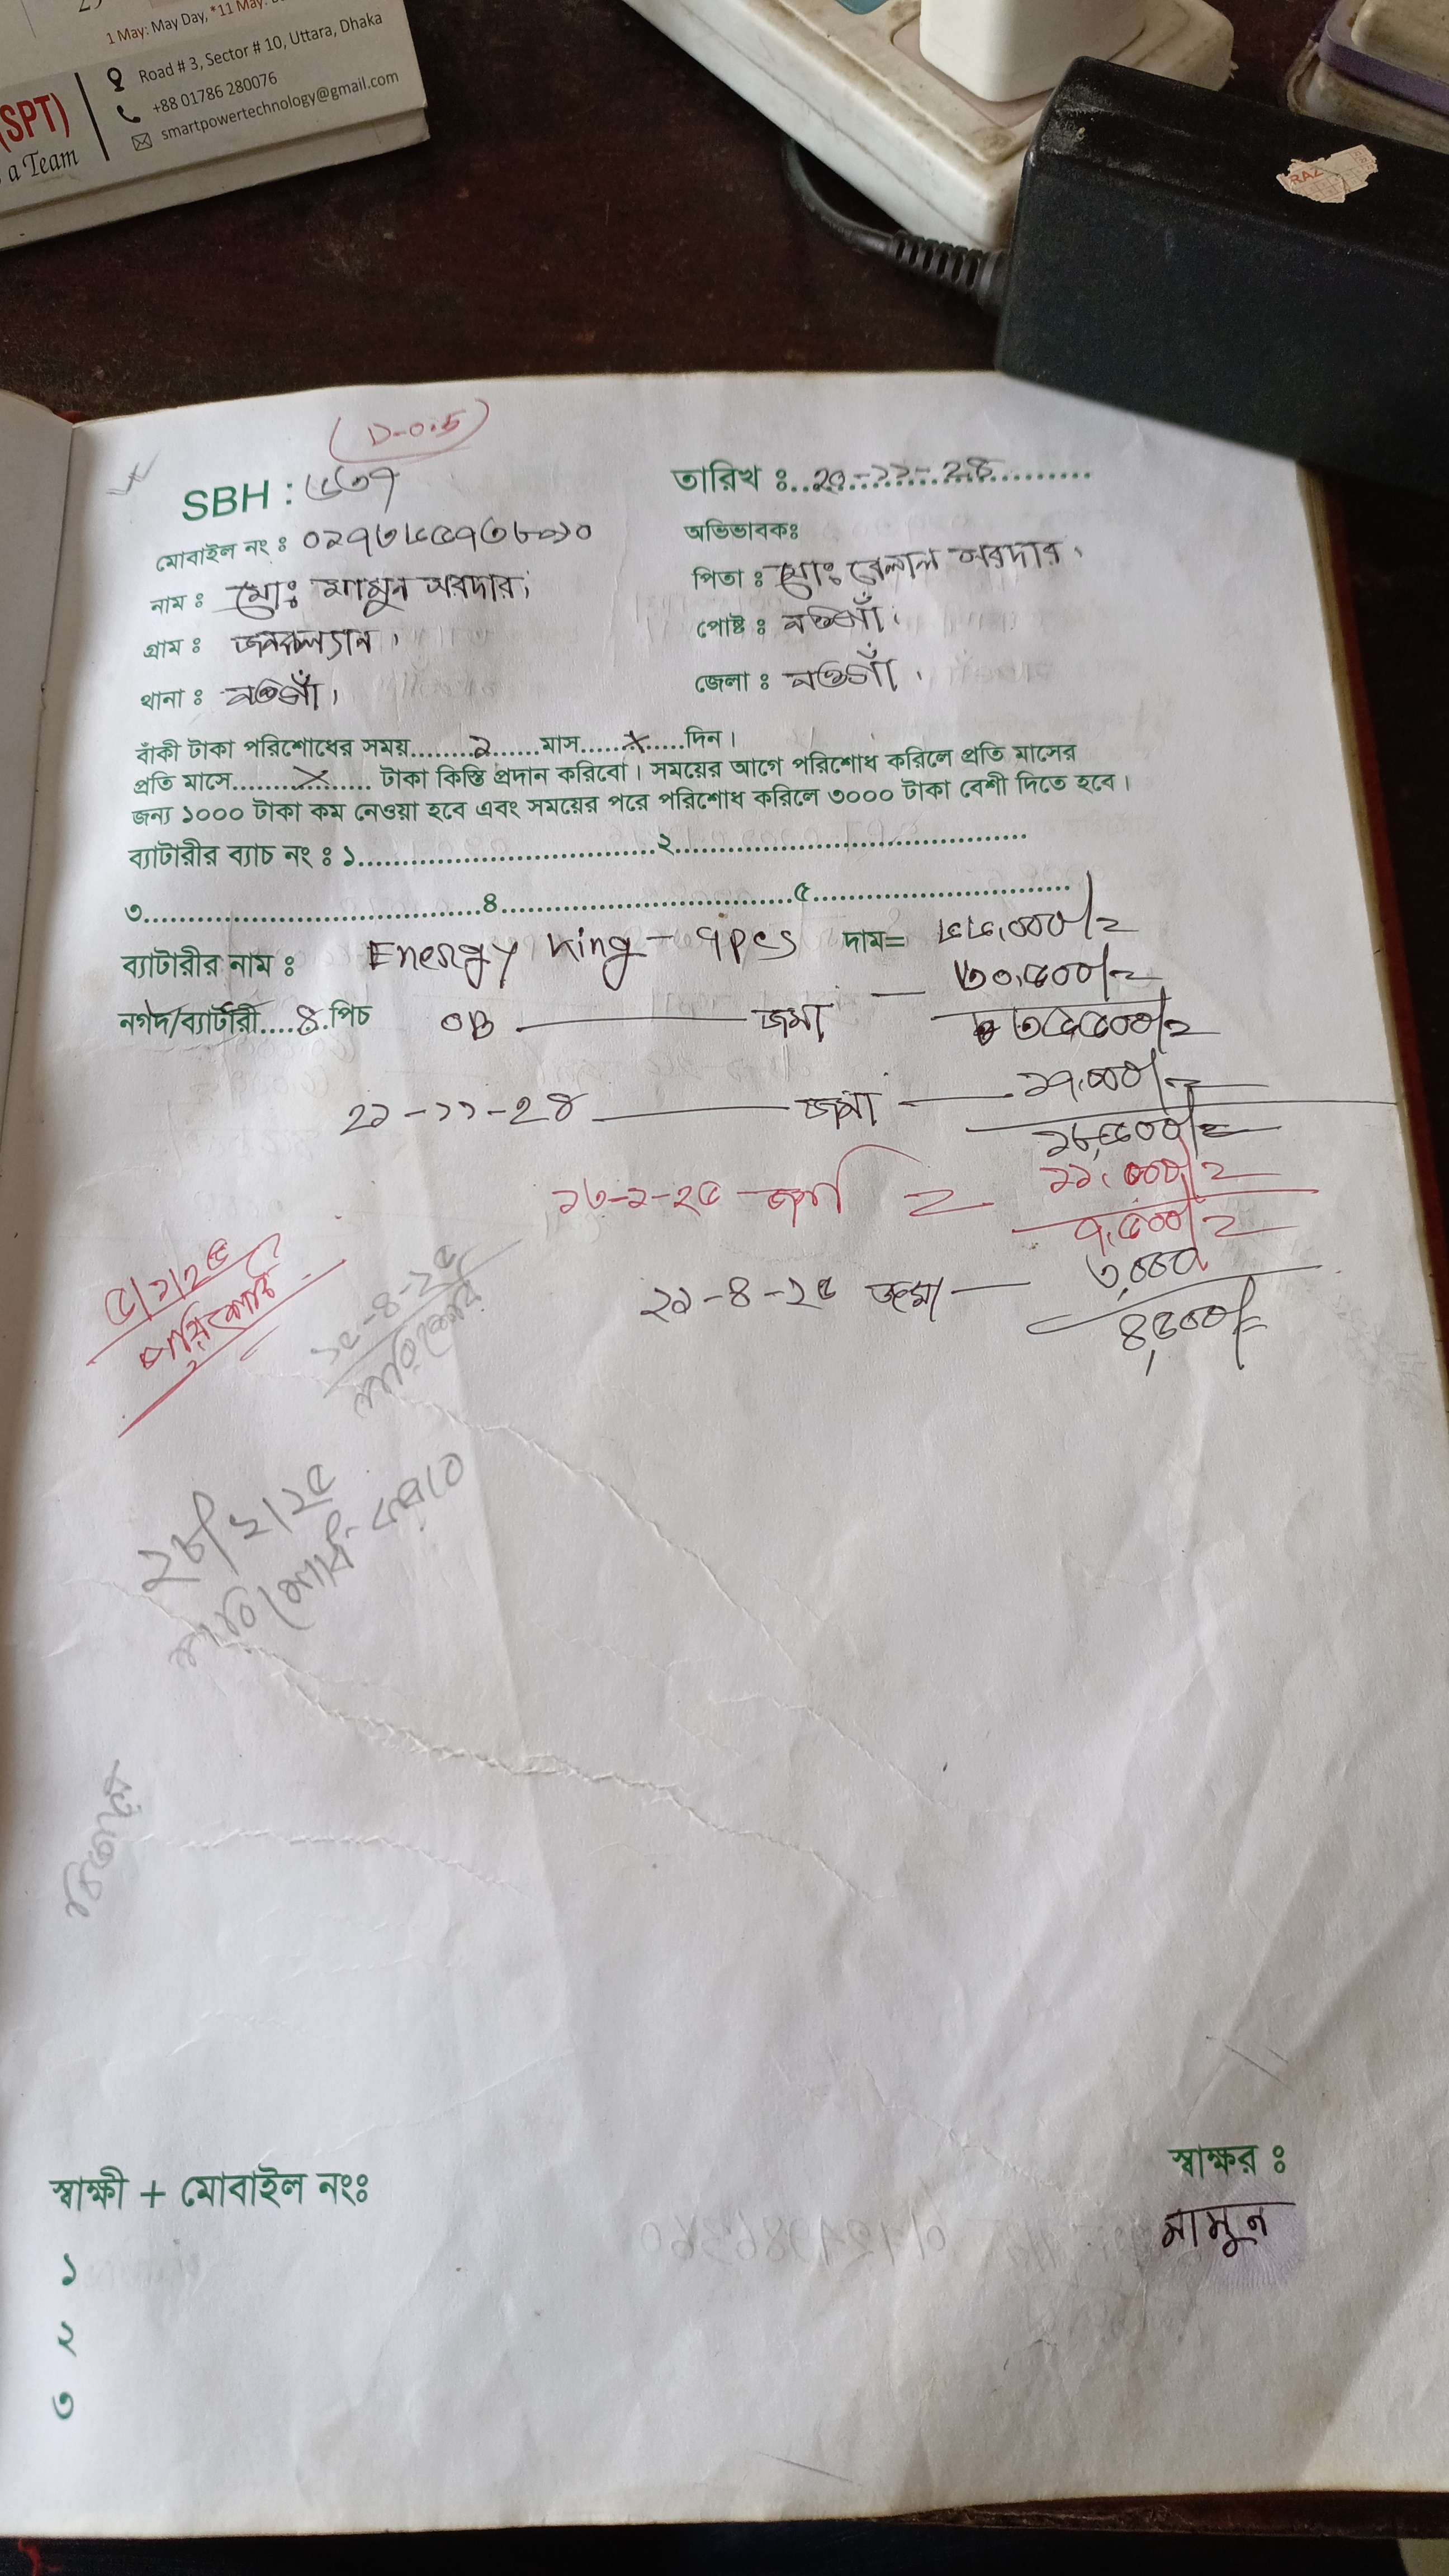 1 May: May Day, *11 May:
Road # 3, Sector # 10, Uttara, Dhaka
+88 01786 280076
smartpowertechnology@gmail.com
(SPT)
a Team
(D-0.5)
SBH : ৬৩৭
তারিখ ঃ..২০-১১-২৪
মোবাইল নং ঃ
অভিভাবকঃ
নাম ঃ মোঃ মামুন সরদার।
পিতা ঃ মোঃ বেলাল সরদার।
গ্রাম ঃ জনকল্যান।
পোষ্ট ঃ নওগাঁ।
থানা ঃ নওগাঁ।
জেলা ঃ নওগাঁ।
বাঁকী টাকা পরিশোধের সময়........২......মাস......x.....দিন।
প্রতি মাসে.........x......... টাকা কিস্তি প্রদান করিবো। সময়ের আগে পরিশোধ করিলে প্রতি মাসের
জন্য ১০০০ টাকা কম নেওয়া হবে এবং সময়ের পরে পরিশোধ করিলে ৩০০০ টাকা বেশী দিতে হবে।
ব্যাটারীর ব্যাচ নং ঃ ১....................................২..........................................
৩.........................................৪....................................৫...............................
ব্যাটারীর নাম ঃ Energy King - 1pcs দাম= ৬৬,০০০/=
নগদ/ব্যাটারী....৪.পিচ OB — জমা — ৩০,৫০০/=
৩৫৫০০/=
২১-১১-২৪ — জমা — ১৭,০০০/=
১৮,৫০০/=
১৬-১-২৫ জমা = ১১,০০০/=
৭,৫০০/=
২১-৪-২৫ জমা — ৩,০০০
৪,৫০০/=
৫/১/২৫
পরিশোধ
১৫-৪-২৫
পরিশোধ
২৮/২/২৫
পরিশোধ করবে
স্বাক্ষী + মোবাইল নংঃ
স্বাক্ষর ঃ
মামুন
১
২
৩